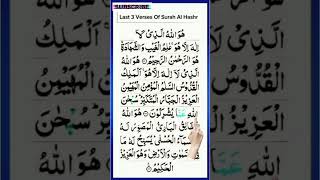 SUBSCRIBE
Last 3 Verses Of Surah Al Hashr
هُوَ اللهُ الَّذِىْ لَآ
اِلٰهَ اِلَّا هُوَ عٰلِمُ الْغَيْبِ وَالشَّهَادَةِ
هُوَ الرَّحْمٰنُ الرَّحِيْمُ هُوَ اللهُ
الَّذِىْ لَآ اِلٰهَ اِلَّا هُوَ اَلْمَلِكُ
الْقُدُّوْسُ السَّلٰمُ الْمُؤْمِنُ الْمُهَيْمِنُ
الْعَزِيْزُ الْجَبَّارُ الْمُتَكَبِّرُ سُبْحٰنَ
اللهِ عَمَّا يُشْرِكُوْنَ هُوَ اللهُ
الْخَالِقُ الْبَارِئُ الْمُصَوِّرُ لَهُ
الْاَسْمَآءُ الْحُسْنٰى يُسَبِّحُ لَهُ مَا
السَّمٰوٰتِ وَالْاَرْضِ وَهُوَ الْعَزِيْزُ
الْحَكِيْمُ